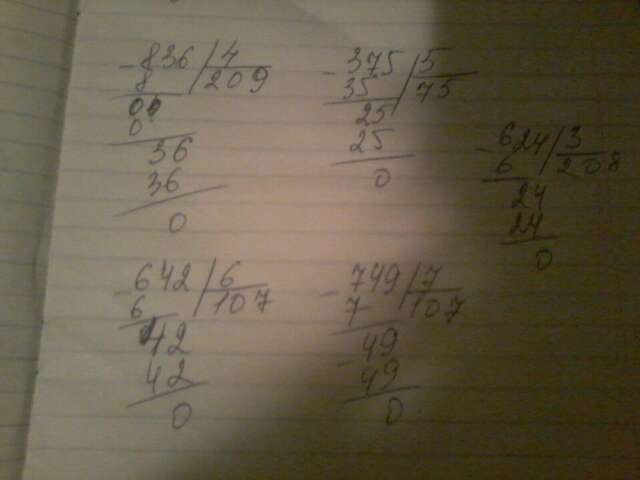 -836 | 4
8 | 209
03
0
36
36
0
-375 | 5
35 | 75
25
25
0
-624 | 3
6 | 208
24
24
0
-642 | 6
6 | 107
42
42
0
-749 | 7
7 | 107
-49
49
0